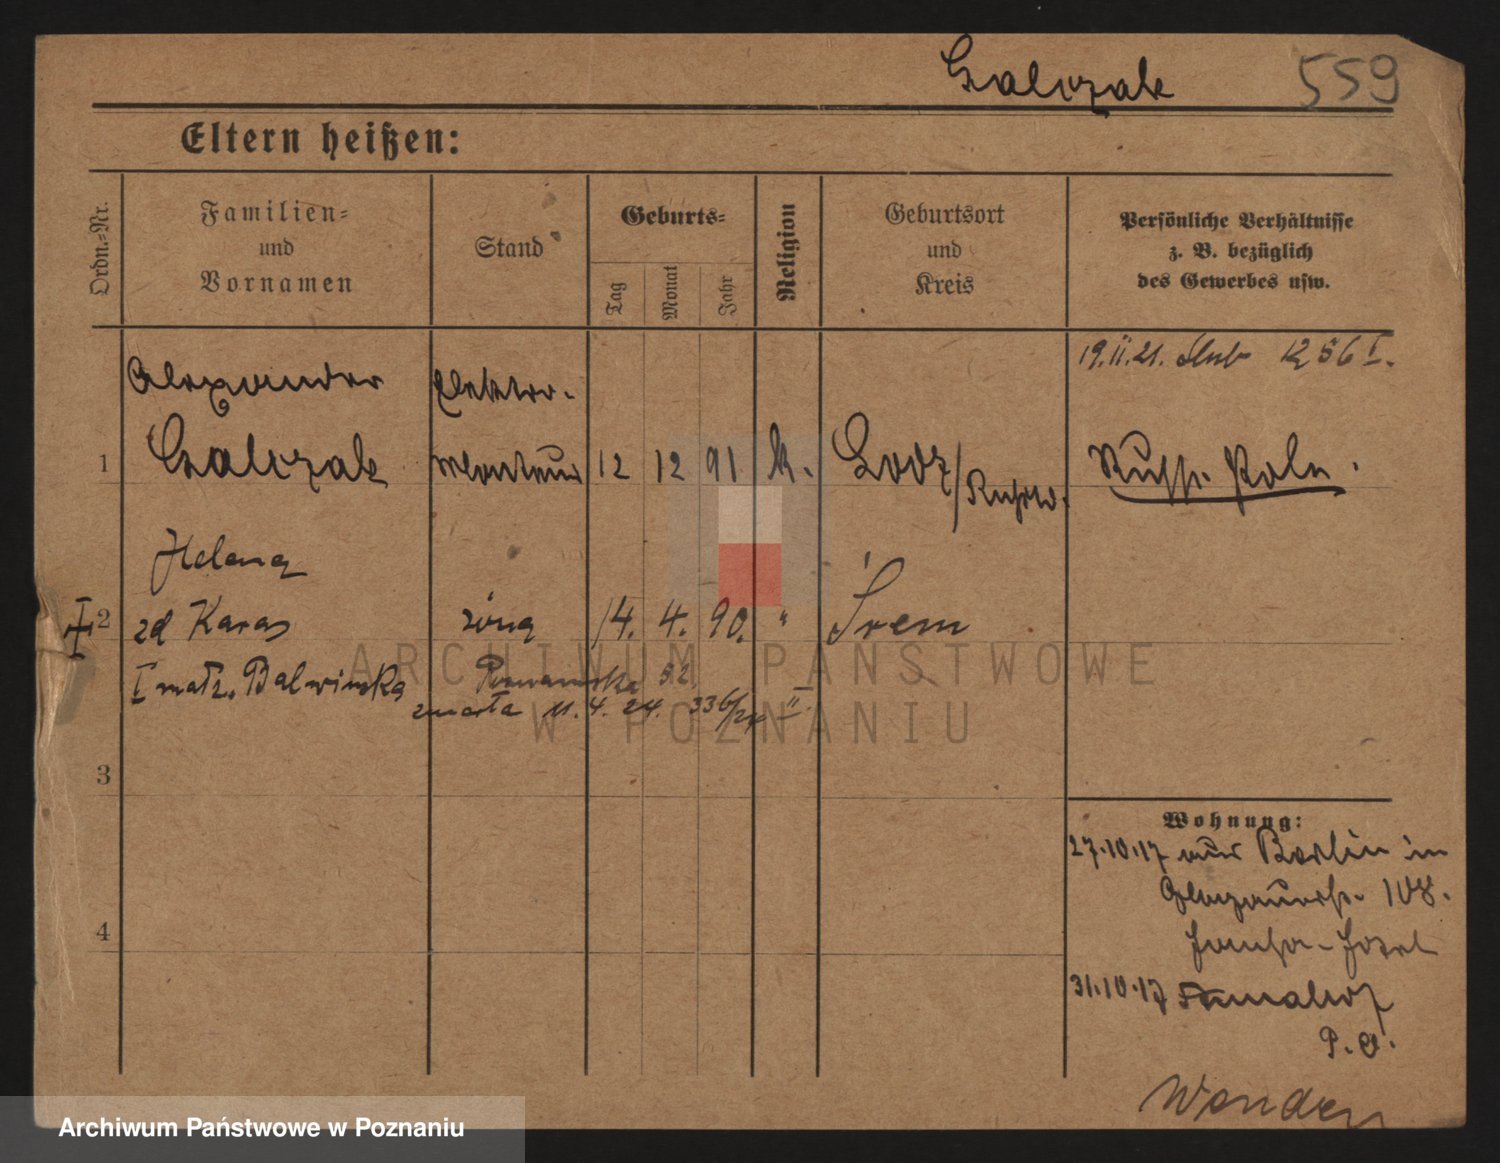 Galczak 559
Eltern heißen:
Ordn.=Nr.
Familien=
und
Vornamen
Stand
Geburts=
Tag
Monat
Jahr
Religion
Geburtsort
und
Kreis
Persönliche Verhältnisse
z. B. bezüglich
des Gewerbes usw.
19.II.21. Slub 1256 I.
Alexander Elektro-
1 Galczak Monteur 12 12 91 k. Lodz/ Russ. Polen.
Helena
2 zd Karas żona 14. 4. 90. " Śrem
I małż. Balwińska
zmarła 11. 4. 24. 336/24 II
3
4
Wohnung:
27.10.17 aus Berlin in
108.
31.10.17
Archiwum Państwowe w Poznaniu
ARCHIWUM PAŃSTWOWE
W POZNANIU